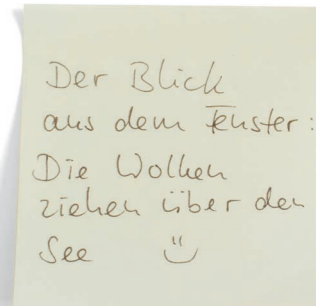 Der Blick
aus dem Fenster:
Die Wolken
ziehen über den
See